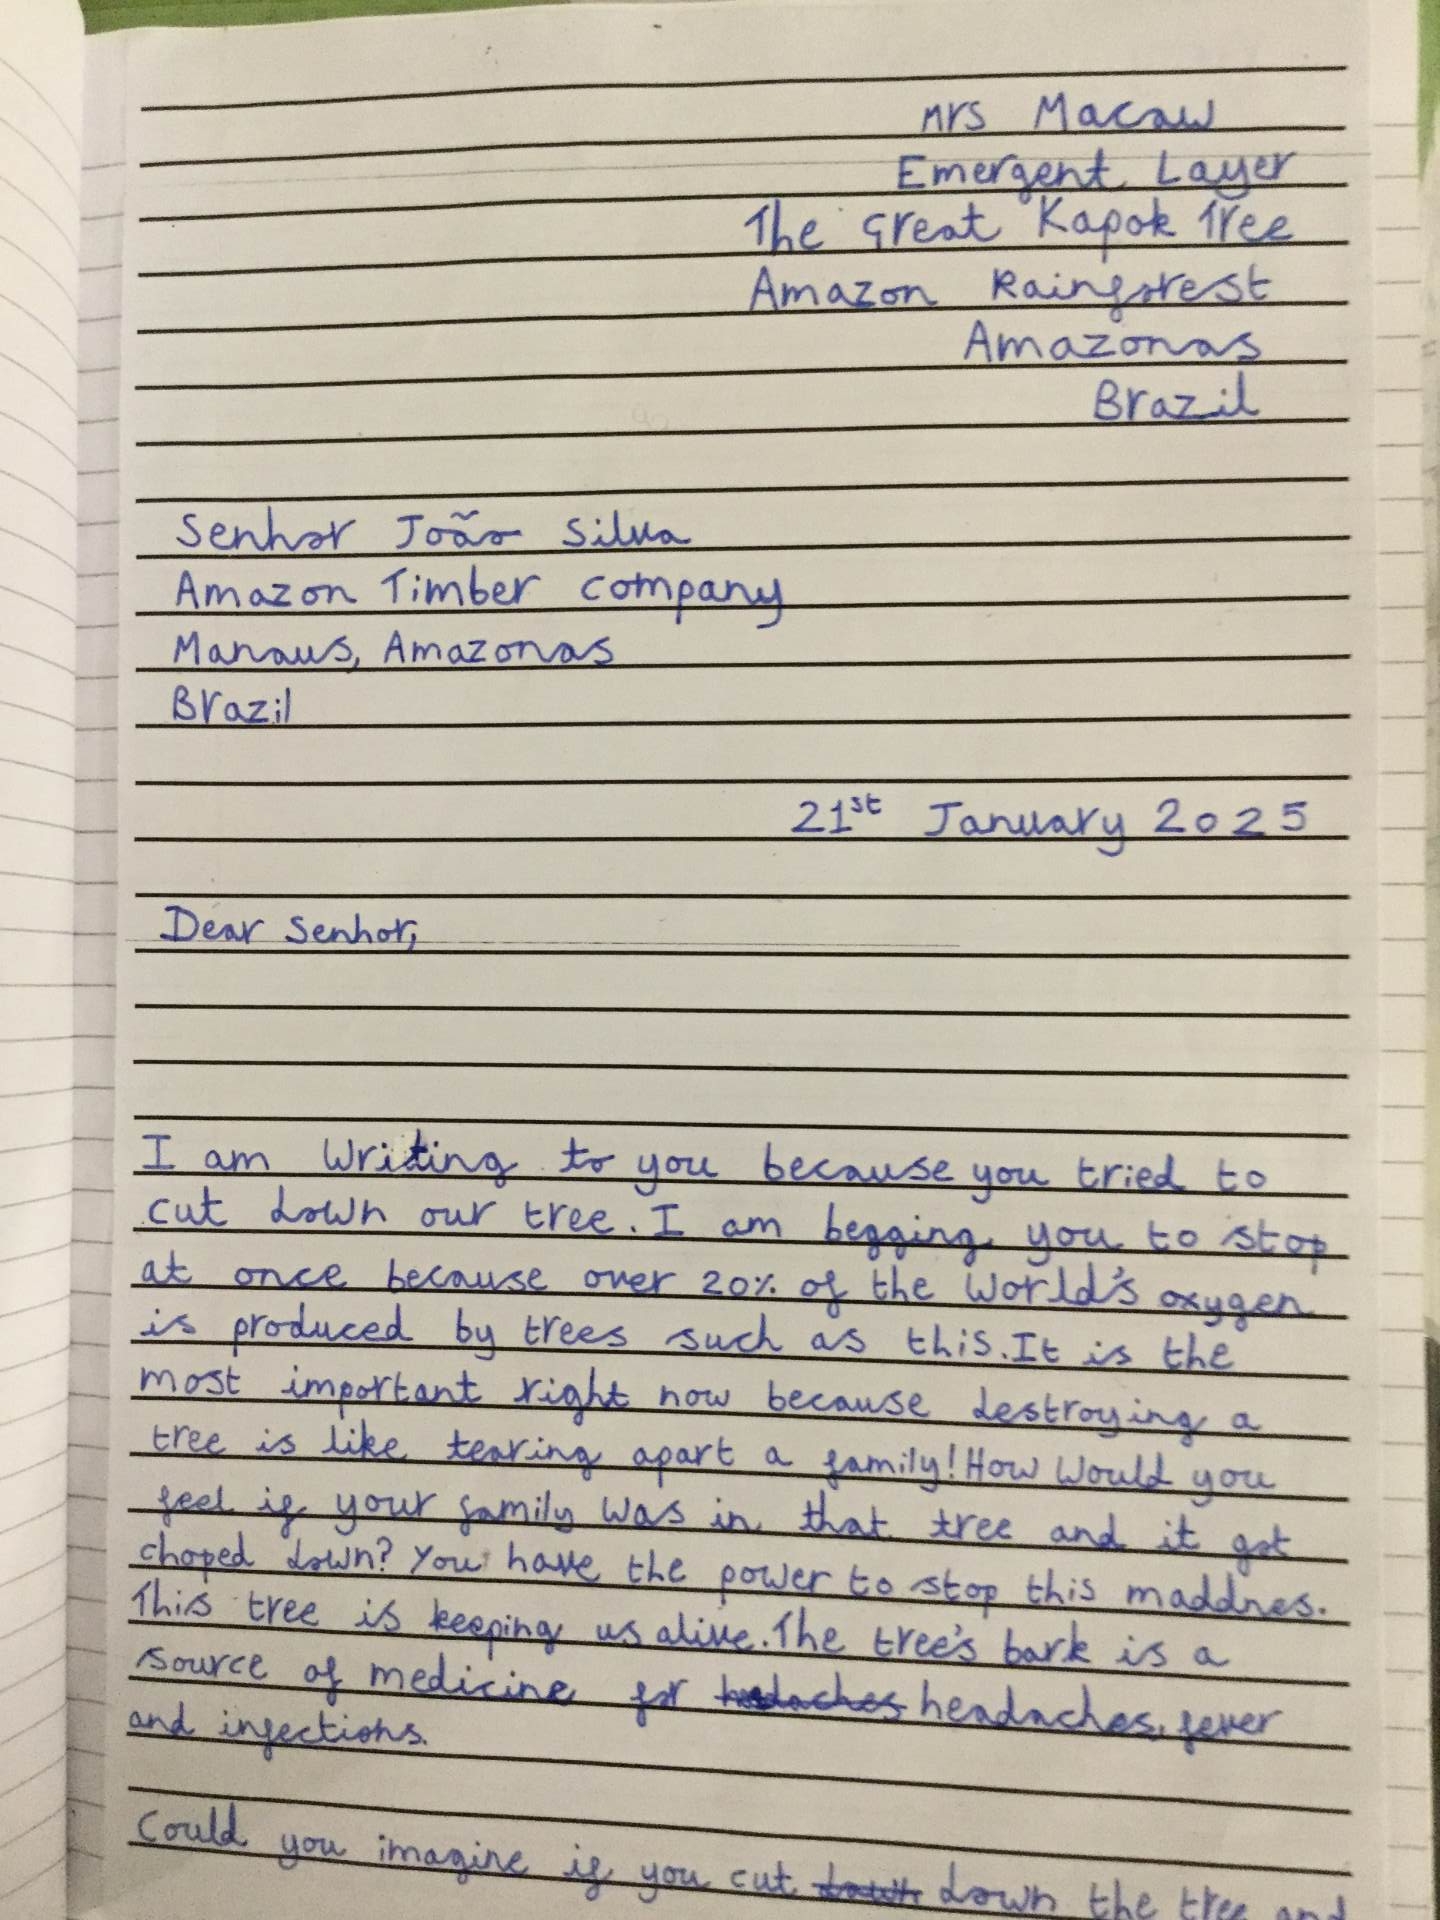 Mrs Macaw
Emergent Layer
The Great Kapok Tree
Amazon Rainforest
Amazonas
Brazil
Senhor João Silva
Amazon Timber company
Manaus, Amazonas
Brazil
21st January 2025
Dear Senhor,
I am Writing to you because you tried to
cut down our tree. I am begging you to stop
at once because over 20% of the World's oxygen
is produced by trees such as this. It is the
most important right now because destroying a
tree is like tearing apart a family! How Would you
feel if your family Was in that tree and it got
choped down? You have the power to stop this maddnes.
This tree is keeping us alive. The tree's bark is a
source of medicine for headaches headaches, fever
and infections.
Could you imagine if you cut down the tree and